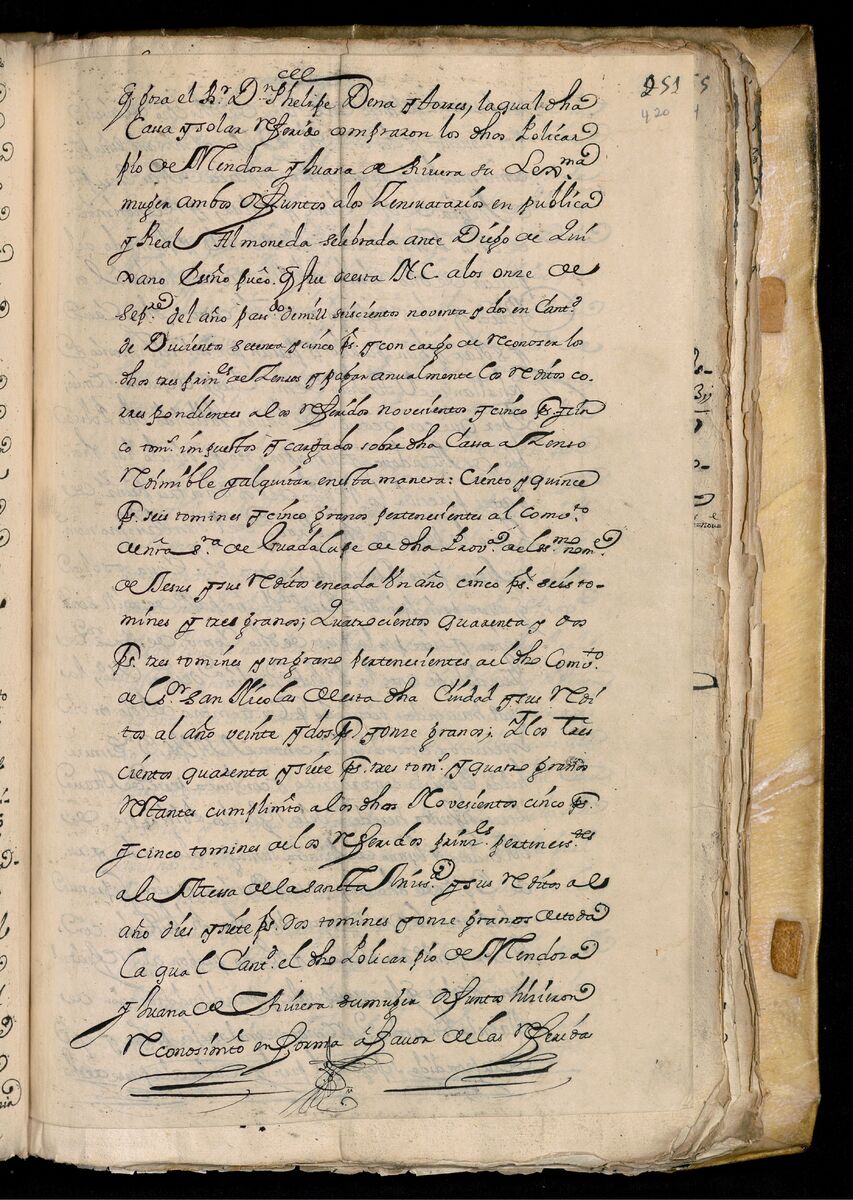 251
420
q̃ goza el Sr. Dn. Phelipe Dena y torres, la qual dha
Cassa y solar referido compraron los dhos Policar
pio de Mendoza y Juana de Rivera su Lexma
muger ambos difuntos a los Zensuatarios en publica
y Real Almoneda selebrada ante Diego de Qui
xano Essno puco. q̃ fue de esta N.C. a los onze de
sepre del año pasdo de mill seiscientos noventa y dos en Cantd
de Ducientos setenta y cinco ps. y con cargo de reconoser los
dhos tres prinles de Zensos y pagar anualmente los reditos co-
rrespondientes a los referidos novesientos y cinco ps. y sin
co tomes. impuestos y cargados sobre dha Cassa a Zenso
redimible y alquitar en esta manera: Ciento y quince
ps. seis tomines y cinco granos pertenesientes al Comvto
de nra Sra de Guadalupe de dha Prova del Ssmo nome
de Jesus y sus reditos en cada Un año cinco ps. seis to-
mines y tres granos; Quatrocientos quarenta y dos
ps. tres tomines y un grano pertenesientes a el dho Comvto
de Sor San Nicolas de esta dha Ciudad y sus redi
tos al año veinte y dos ps. y onze granos; Y los tres
cientos quarenta y siete ps. tres tomes. y quatro granos
restantes cumplimto a los dhos Novesientos cinco ps.
y cinco tomines de los referidos prinles pertenestes
a la Messa de la sancta Iniss. y sus reditos al
año dies y siete ps. dos tomines y onze granos de toda
la qual Cantd el dho Policarpio de Mendoza
y Juana de Rivera su muger difuntos hizieron
reconosimto en forma á favor de las referida